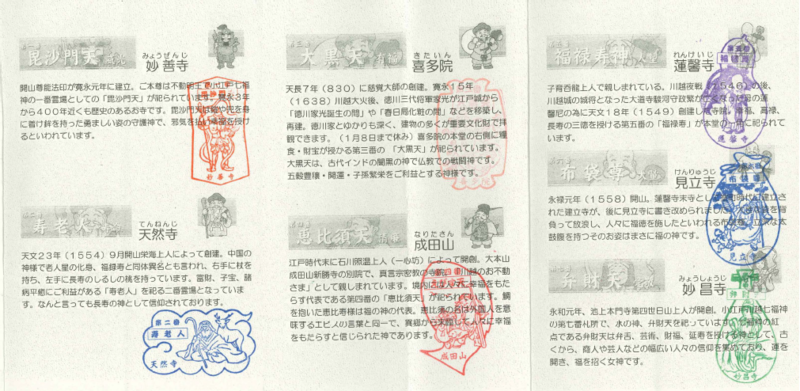 毘沙門天
みょうぜんじ
妙善寺
開山尊能法印が寛永元年に建立。ご本尊は不動明王で小江戸七福
神の一番霊場としての「毘沙門天」が祀られています。寛永3年
から400年近くも歴史のあるお寺です。毘沙門天は
に着け鉾を持った勇ましい姿の守護神で、邪気を払い
るといわれています。
妙善寺
寿老人
てんねんじ
天然寺
天文23年(1554)9月開山栄海上人によって創建。中国の
神様で老人星の化身、福禄寿と同体異名とも言われ、右手に杖を
持ち、左手に長寿のしるしの桃を持っています。富財、子宝、諸
病平癒にご利益がある「寿老人」を祀る二番霊場となっていま
す。なんと言っても長寿の神として信仰されております。
第二番
寿老人
天然寺
大黒天
きたいん
喜多院
天長7年(830)に慈覚大師の創建。寛永15年
(1638)川越大火後、徳川三代将軍家光が江戸城から
「徳川家光誕生の間」や「春日局化粧の間」などを移築し、
再建。徳川家とゆかりも深く、建物の多くが重要文化財で拝
観できます。(1月8日まで休み)喜多院の本堂の右側に糧
食・財宝が授かる第三番の「大黒天」が祀られています。
大黒天は、古代インドの闇黒の神で仏教での戦闘神です。
五穀豊穣・開運・子孫繁栄をご利益とする神様です。
恵比須天
なりたさん
成田山
江戸時代末に石川照温上人(一心坊)によって開創。大本山
成田山新勝寺の別院で、真言宗智山
さま」として親しまれています。境内には人々に幸福をもた
らす代表である第四番の「恵比須天」が祀られています。鯛
を抱いた恵比寿様は福の神の代表。恵比須の名は外国人を意
味するエビスの言葉と同一で、異郷から来臨して人々に幸福
をもたらすと信じられた神であります。
成田山
福禄寿神
れんけいじ
蓮馨寺
子育呑龍上人で親しまれている、川越夜戦(1546)の後、
川越城の城将となった大道寺駿河守政繁が
馨尼の為に天文18年(1549)創建し
長寿の三徳を授ける第五番の「福禄寿」が本堂の
ます。
福禄寿
蓮馨寺
布袋尊
見立寺
永禄元年(1558)開山。蓮馨寺末寺とし
た建立寺が、後に見立寺に書き改められました。
負って放浪し、人々に福徳を施したといわれる布袋
鼓腹を持つそのお姿はまさに福の神です。
布袋尊
見立寺
弁財天
みょうしょうじ
妙昌寺
永和元年、池上本門寺第四世日山上人が開創。小江戸川越七福
神の第七番札所で、水の神、弁財天を祀っています。
点である弁財天は弁舌、芸術、財福、延寿を授ける神として、古
くから、商人や芸人などの幅広い人々の信仰を集めており、運を
開き、福を招く女神です。
妙昌寺